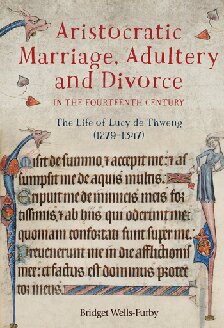 Aristocratic
Marriage, Adultery
and Divorce
IN THE FOURTEENTH CENTURY
The Life of Lucy de Thweng
(1279–1347)
Misit de summo et accepit me: et as
sumpsit me de aquis multis.
Eripuit me de inimicis meis for
tissimis et ab hiis qui oderunt me:
quoniam confortati sunt super me.
Prevenerunt me in die afflictionis
mee: et factus est dominus protec
tor meus.
Bridget Wells-Furby